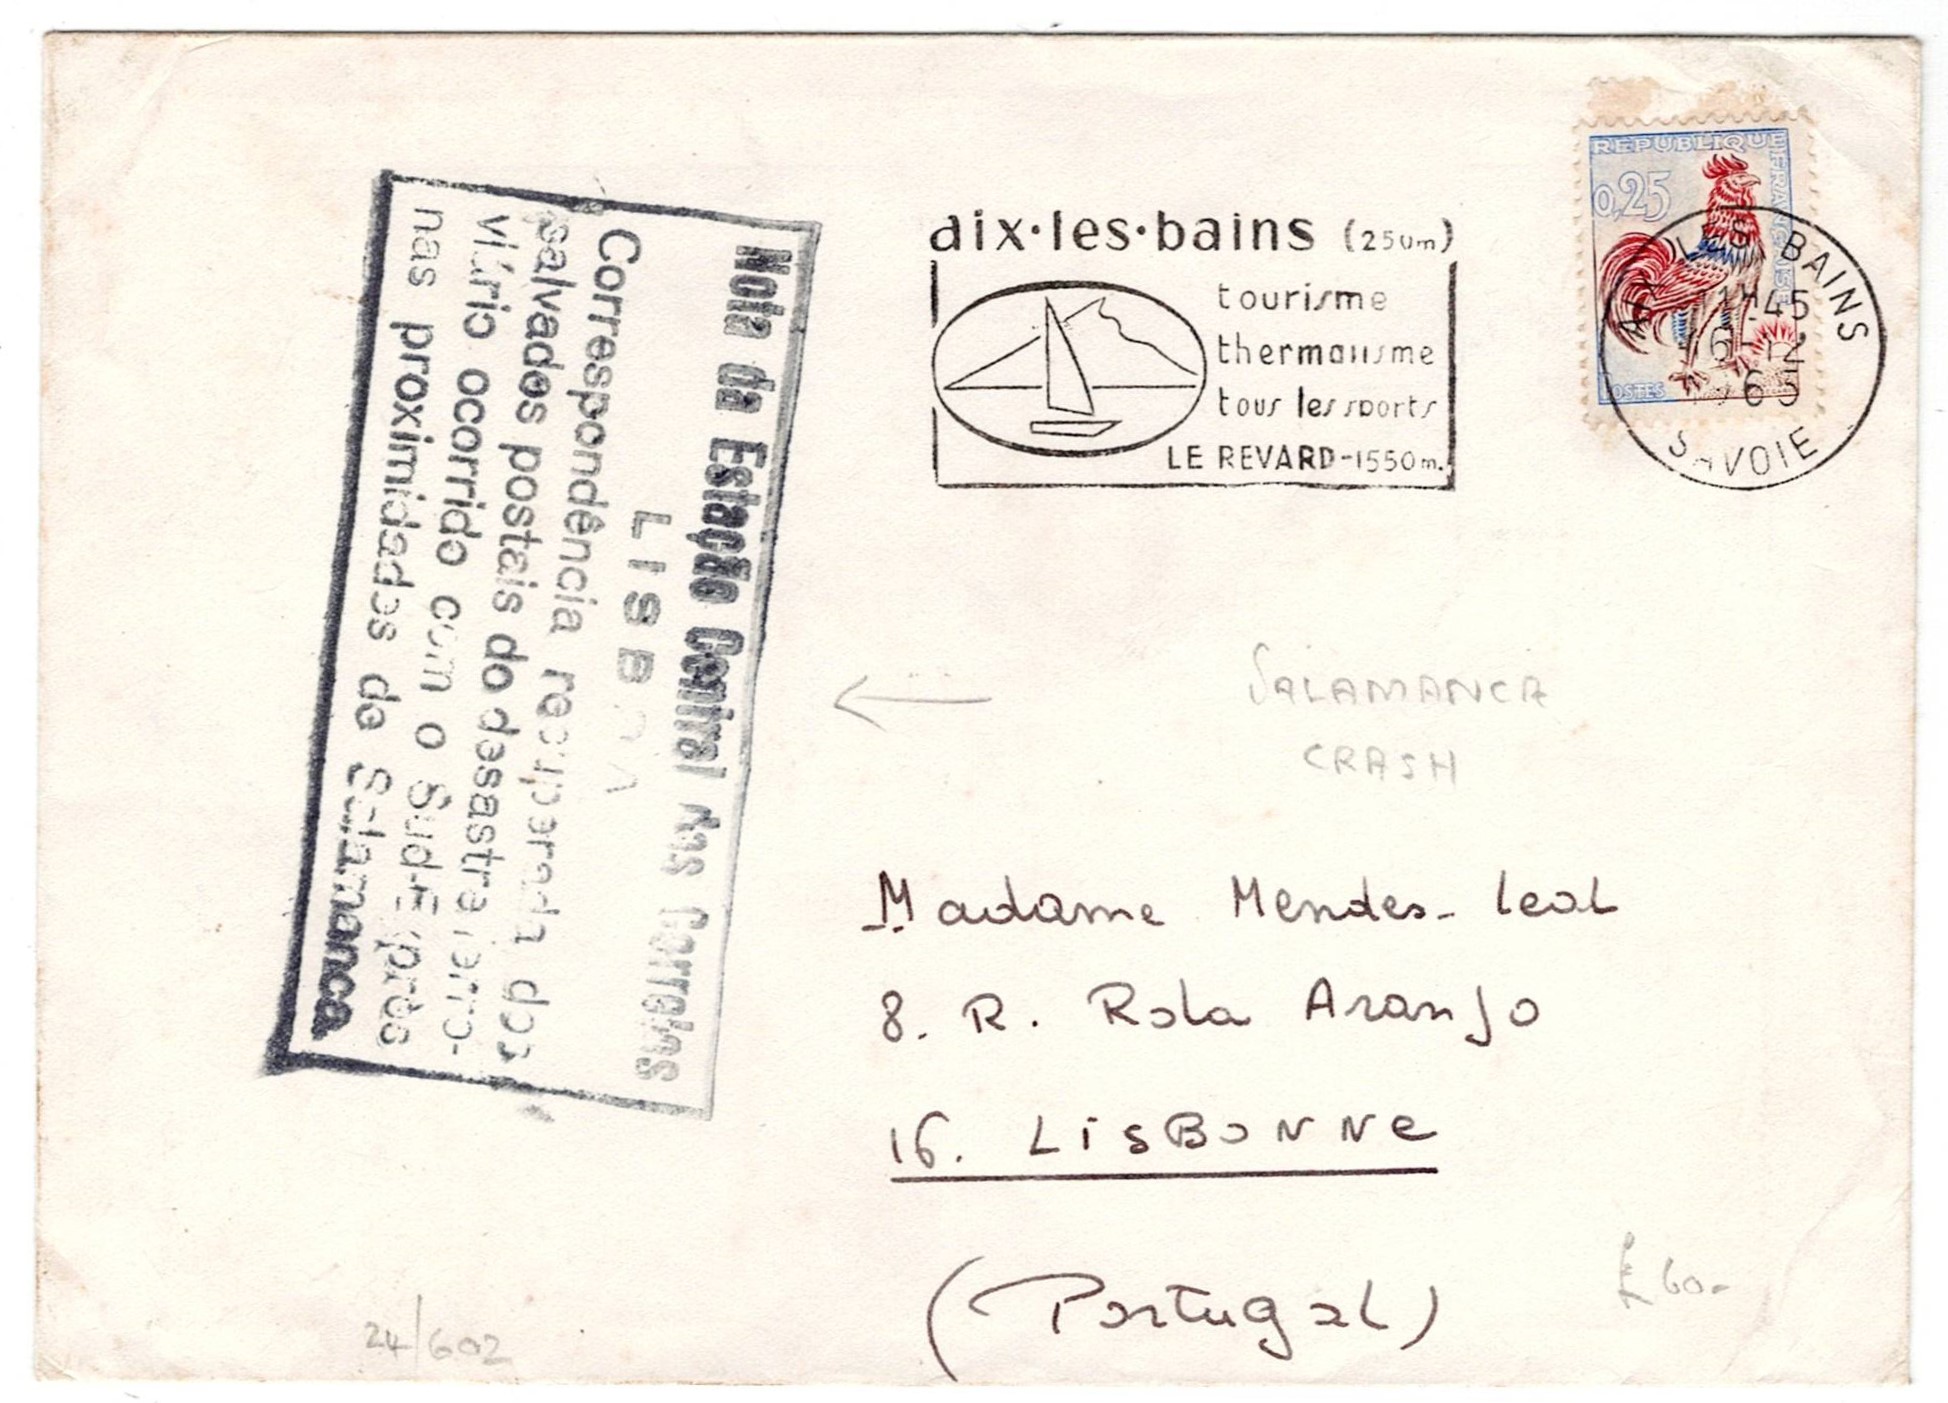 REPUBLIQUE FRANÇAISE
0,25
POSTES
AIX LES BAINS
11H45
6-12
1965
SAVOIE
aix·les·bains (250m)
tourisme
thermalisme
tous les sports
LE REVARD-1550m.
Nota da Estação Central dos Correios
LISBOA
Correspondência recuperada dos
salvados postais do desastre ferro-
viário ocorrido com o Sud-Exprès
nas proximidades de Salamanca
SALAMANCA
CRASH
Madame Mendes-Leal
8. R. Rola Aranjo
16. LISBONNE
(Portugal)
£60-
24/602